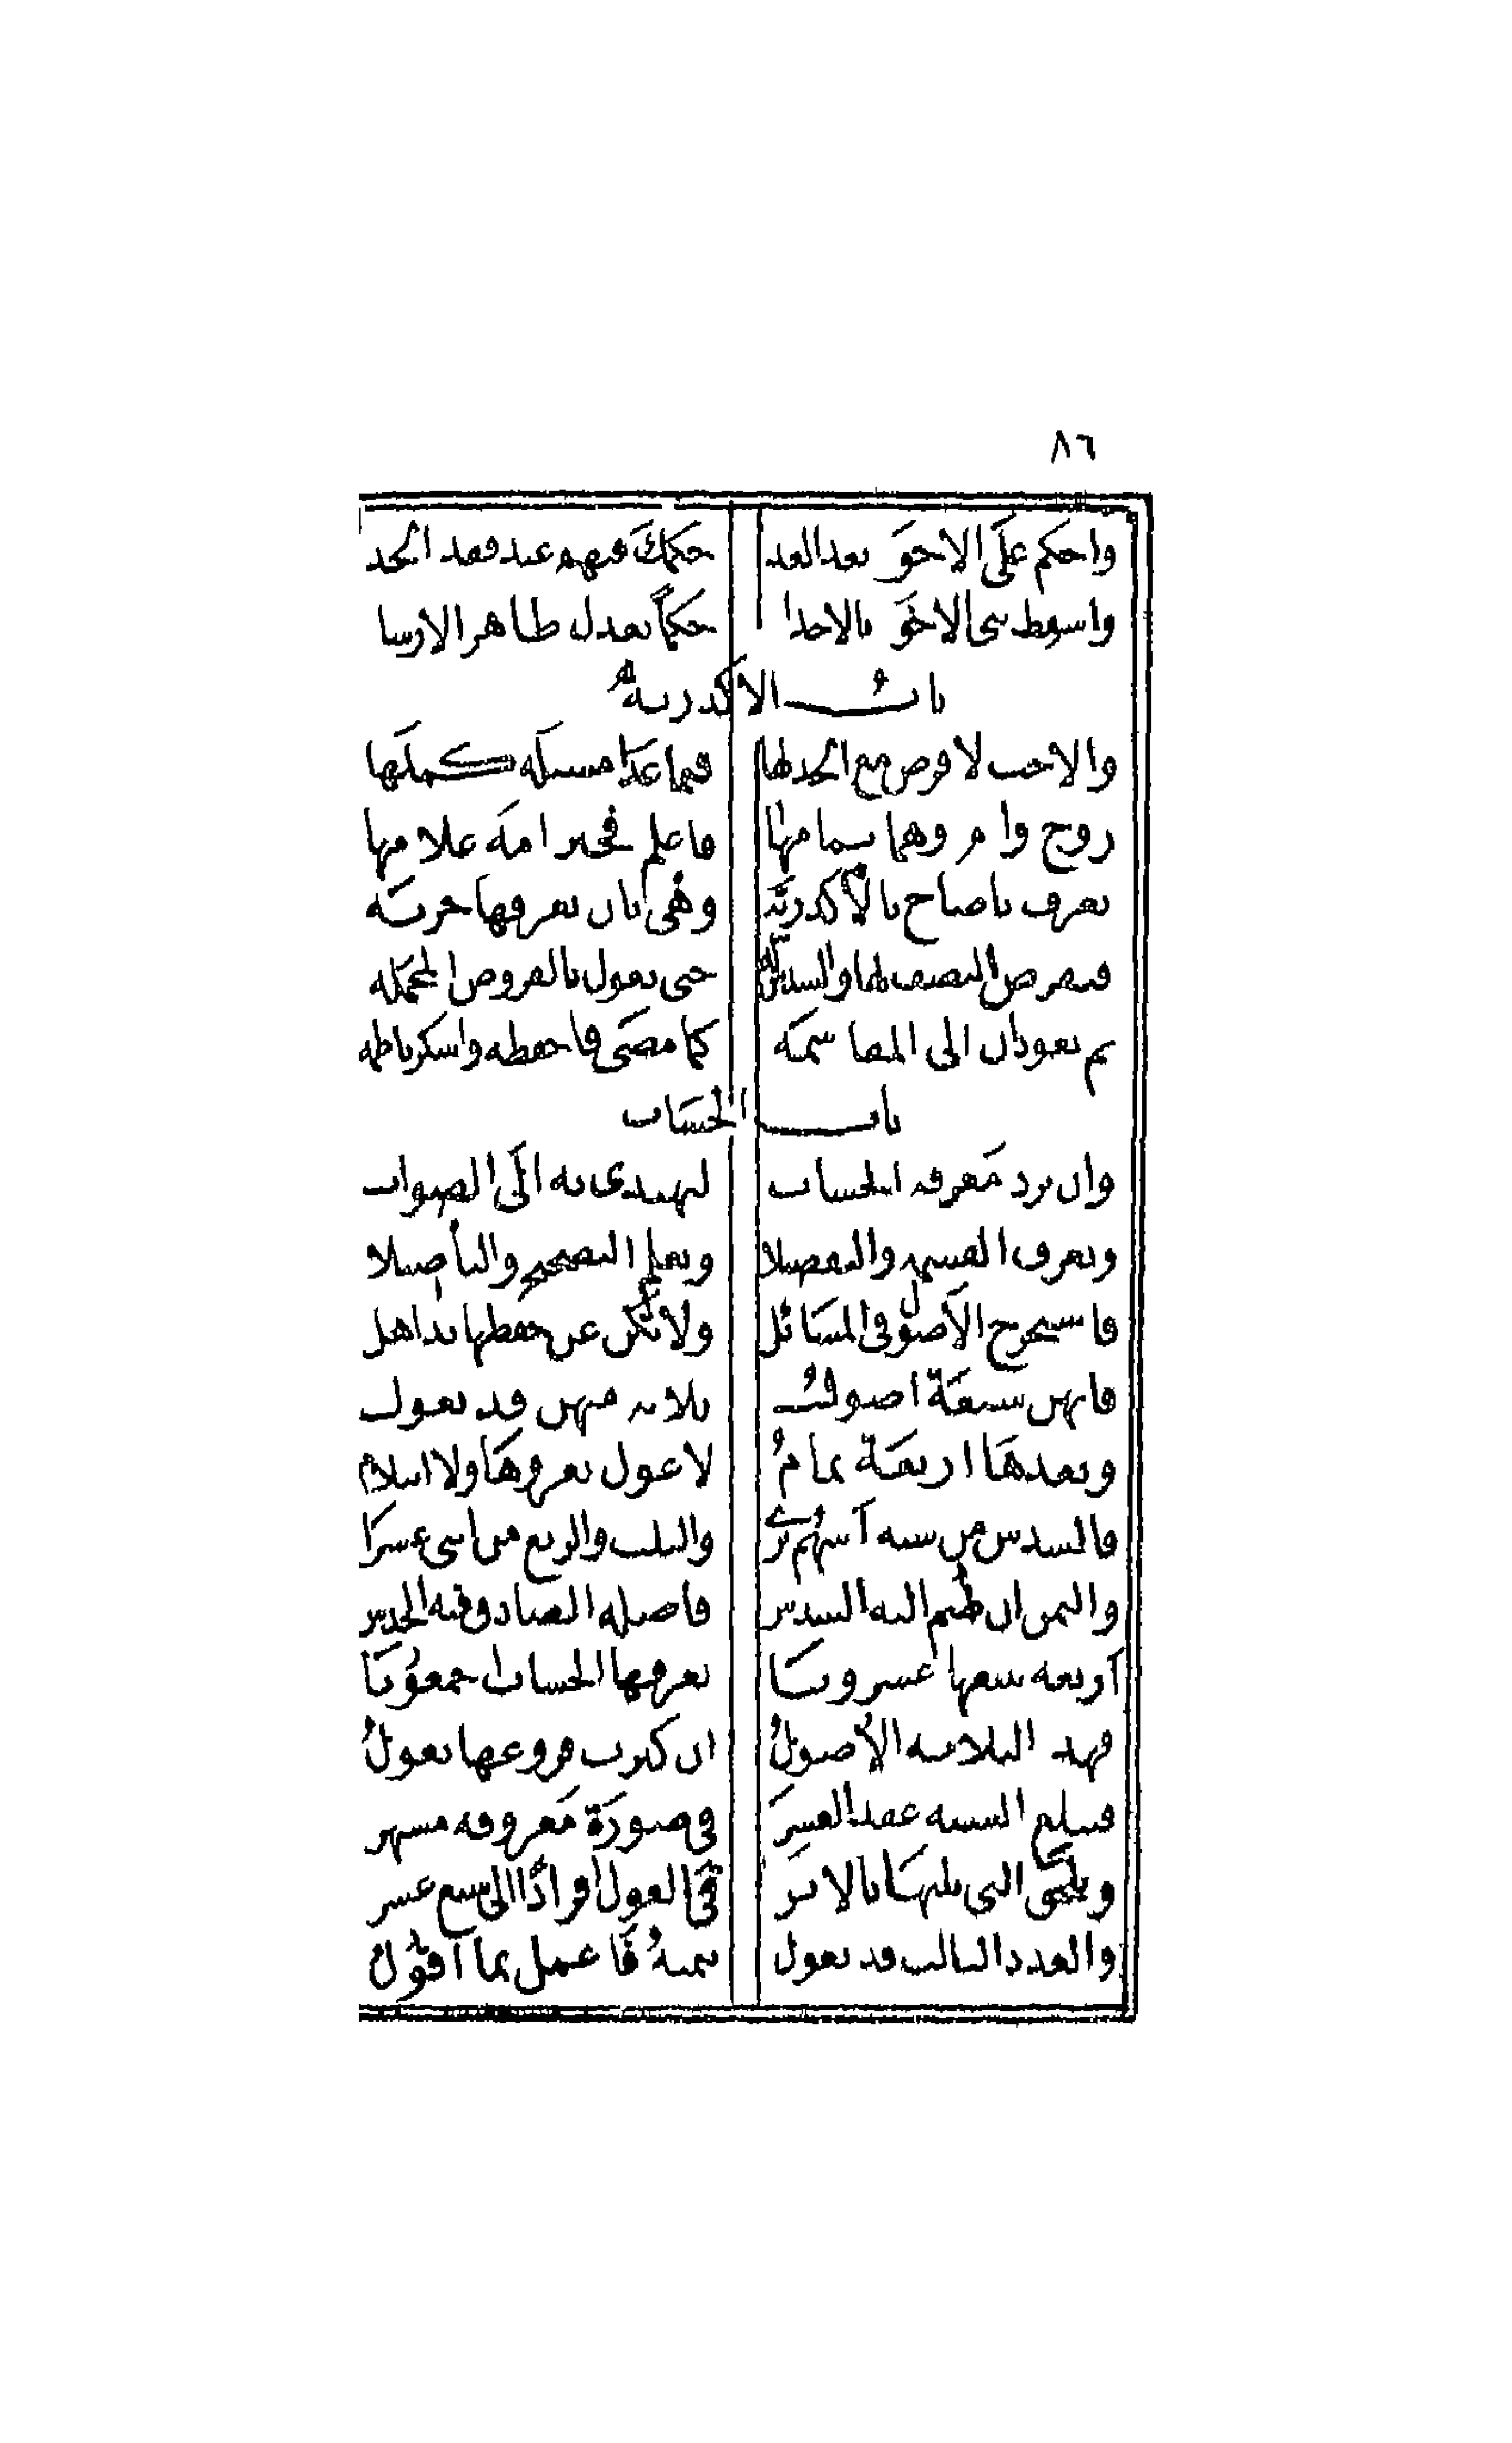 ٨٦
واحكم على الاخوة بعد العد حكمك فيهم عند فقد الجد
واسقط بني الاخوة بالاجداد حكما بعدل ظاهر الارشاد
باب الاكدرية
والاخت لا فرض مع الجد لها فيما عدا مسئلة كملها
زوج وام وهما تمامها فاعلم فخير امة علامها
تعرف يا صاح بالاكدرية وهي بان تعرفها حرية
فيفرض النصف لها والسدس له حتى تعول بالفروض المجمله
ثم يعودان الى المقاسمه كما مضى فاحفظه واشكر ناظمه
باب الحساب
وان ترد معرفة الحساب لتهتدي به الى الصواب
وتعرف القسمة والتفصيلا وتعلم التصحيح والتأصيلا
فاستخرج الأصول في المسائل ولا تكن عن حفظها بذاهل
فانهن سبعة اصول ثلاثة منهن قد تعول
وبعدها اربعة تمام لا عول يعروها ولا انثلام
فالسدس من ستة اسهم يرى والثلث والربع من اثني عشرا
والثمن ان ضم اليه السدس فاصله الصادق فيه الحدس
اربعة يتبعها عشرونا يعرفها الحساب اجمعونا
فهذه الثلاثة الاصول ان كثرت فروعها تعول
فتبلغ الستة عقد العشره في صورة معروفة مشتهره
وتلحق التي تليها بالاثر في العول افرادا الى سبع عشر
والعدد الثالث قد يعول بثمنه فاعمل بما اقول